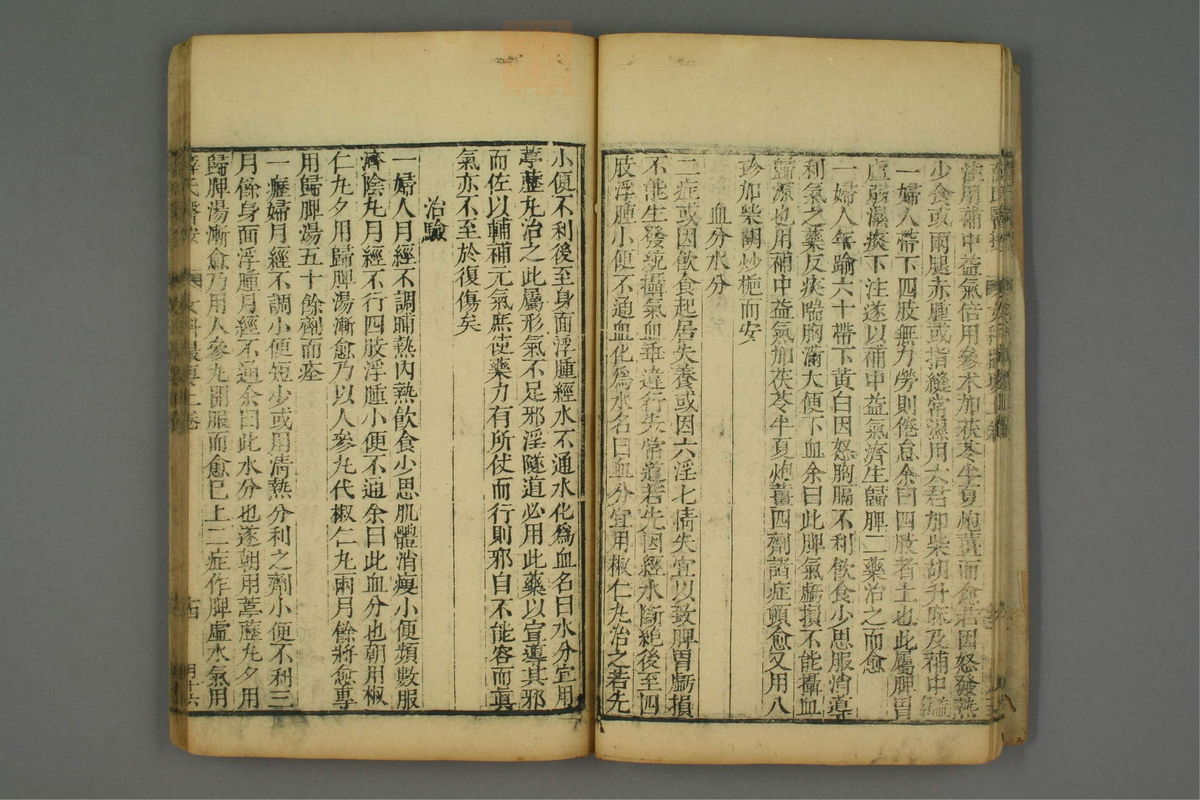 症用補中益氣倍用參朮加茯苓半夏炮薑而愈若因怒發熱
少食或兩腿赤腫或指縫常濕用六君加柴胡升麻及補中益氣
一婦人帶下四肢無力勞則倦怠余曰四肢者土也此屬脾胃
虛弱濕痰下注遂以補中益氣濟生歸脾二藥治之而愈
一婦人年踰六十帶下黃白因怒胸膈不利飲食少思服消導
利氣之藥反痰喘胸滿大便下血余曰此脾氣虧損不能攝血
歸源也用補中益氣加茯苓半夏炮薑四劑諸症頓愈又用八
珍加柴胡炒梔而安
血分水分
二症或因飲食起居失養或因六淫七情失宜以致脾胃虧損
不能生發統攝氣血乖違行失常道若先因經水斷絕後至四
肢浮腫小便不通血化爲水名曰血分宜用椒仁丸治之若先
小便不利後至身面浮腫經水不通水化爲血名曰水分宜用
葶藶丸治之此屬形氣不足邪淫隧道必用此藥以宣導其邪
而佐以輔補元氣庶使藥力有所仗而行則邪自不能容而眞
氣亦不至於復傷矣
治驗
一婦人月經不調晡熱內熱飲食少思肌體消瘦小便頻數服
濟陰丸月經不行四肢浮腫小便不通余曰此血分也朝用椒
仁丸夕用歸脾湯漸愈乃以人參丸代椒仁丸兩月餘將愈專
用歸脾湯五十餘劑而痊
一癃婦月經不調小便短少或用清熱分利之劑小便不利三
月餘身面浮腫月經不通余曰此水分也遂朝用葶藶丸夕用
歸脾湯漸愈乃用人參丸間服而愈已上二症作脾虛水氣用
薛氏醫按 女科撮要上卷